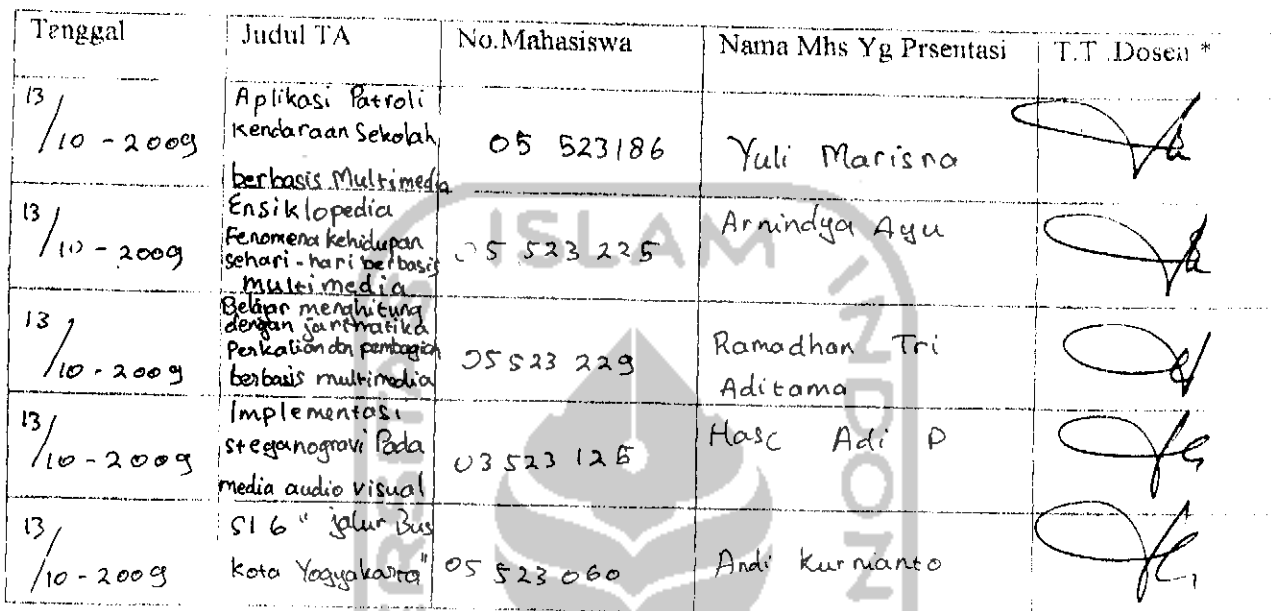 Tanggal Judul TA No.Mahasiswa Nama Mhs Yg Prsentasi T.T .Dosen *
13/10 - 2009 Aplikasi Patroli Kendaraan Sekolah berbasis Multimedia 05 523186 Yuli Marisna
13/10 - 2009 Ensiklopedia Fenomena kehidupan sehari-hari berbasis multimedia 05 523 225 Arnindya Ayu
13/10 - 2009 Belajar menghitung dengan jaritmatika Perkalian dan pembagian berbasis multimedia 05523 229 Ramadhan Tri Aditama
13/10 - 2009 Implementasi steganogravi Pada media audio visual 03523 125 Adi P
13/10 - 2009 "jalur Bus Kota Yogyakarta" 05 523 060 Andi Kurnianto
ISLAM
INDON
RSITAS